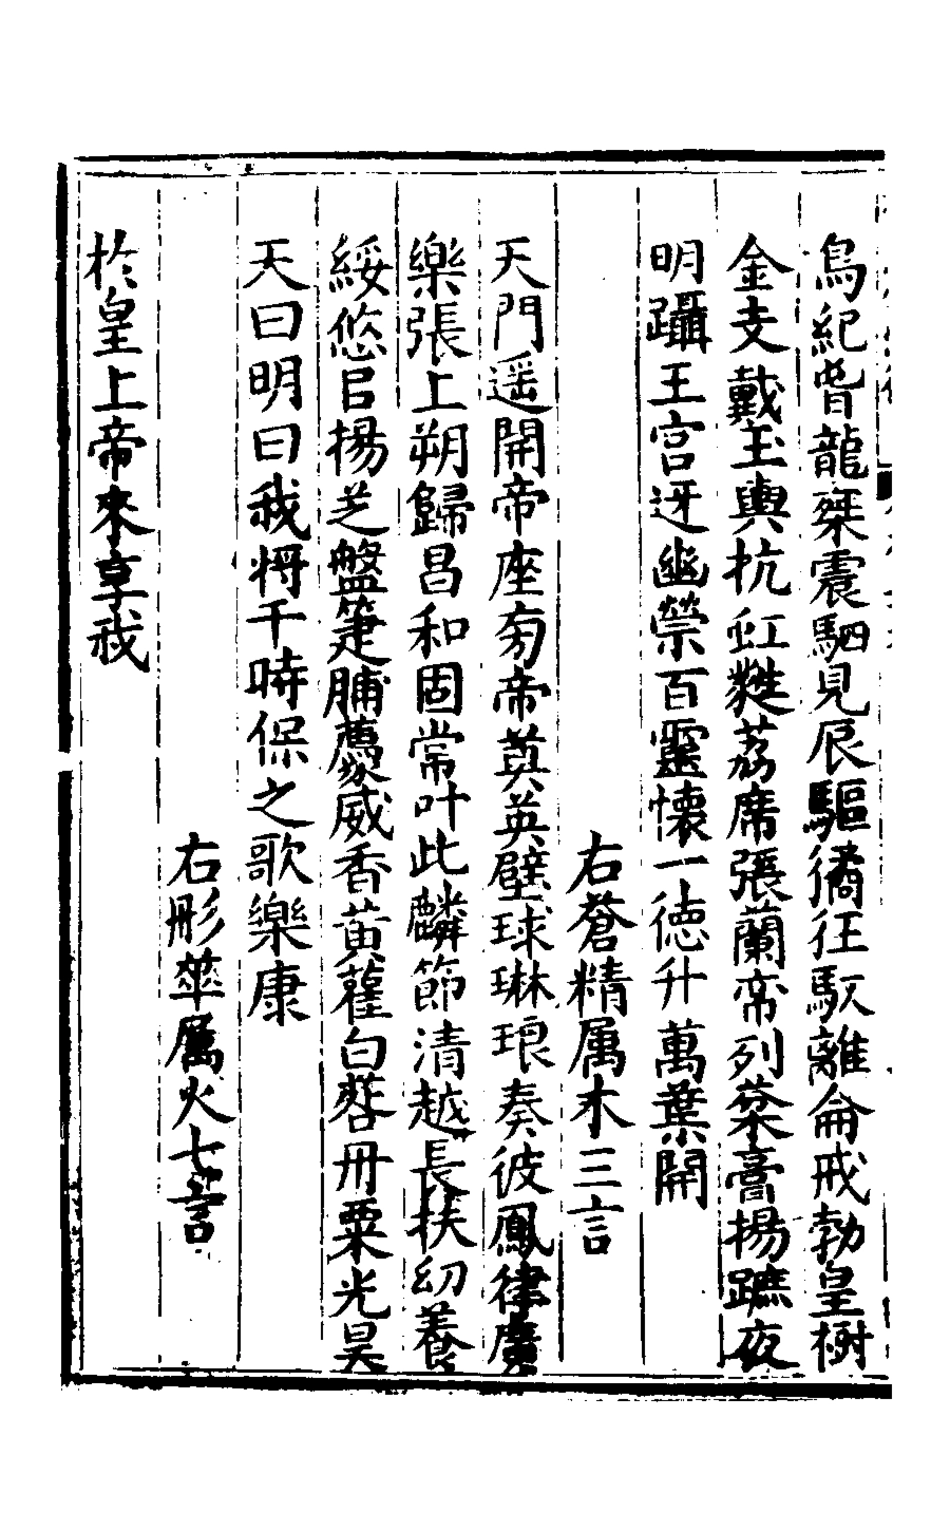 鳥紀訾龍桀震駟見辰驅㺐徃馭離侖戒勃皇樹
金支戴玉輿抗虹㲯荔席張蘭帟列蕖膏揚蹠夜
明躡王宮迓幽禜百靈懷一德升萬葉開
右蒼精属木三言
天門遥開帝座旁帝蓂英璧球琳琅奏彼鳳律廣
樂張上朔歸昌和固常叶此麟節清越長扶幼養
綏悠㠯揚芝盤箑脯薦威香黃雚白㟧丹粟光昊
天曰明曰我將千時保之歌樂康
右彤華属火七言
於皇上帝來享我